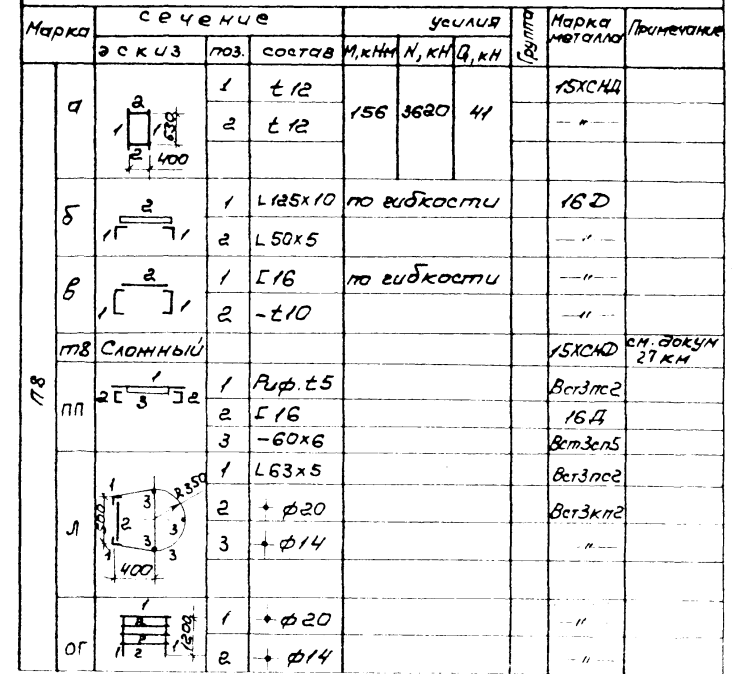 Марка сечение усилия Группа Марка металла Примечание
эскиз поз. состав М,кНм N, кН Q, кН
П8
а 2 1 1 2 630 400 1 t 12 156 3620 41 15ХСНД
2 t 12 — " —
б 2 1 1 1 L125×10 по гибкости 16Д
2 L 50×5 — " —
в 2 1 1 1 [16 по гибкости — " —
2 -t10 — " —
т8 Сложный 15ХСНД см. докум 27 КМ
пп 1 2 3 2 1 Риф. t5 Вст3пс2
2 [16 16Д
3 -60×6 Вст3сп5
л 1 3 R350 500 2 3 3 1 3 400 1 L63×5 Вст3пс2
2 ϕ20 Вст3кп2
3 ϕ14 — " —
ог 1 2 2 1 2 1 1200 1 ϕ20 — " —
2 ϕ14 — " —